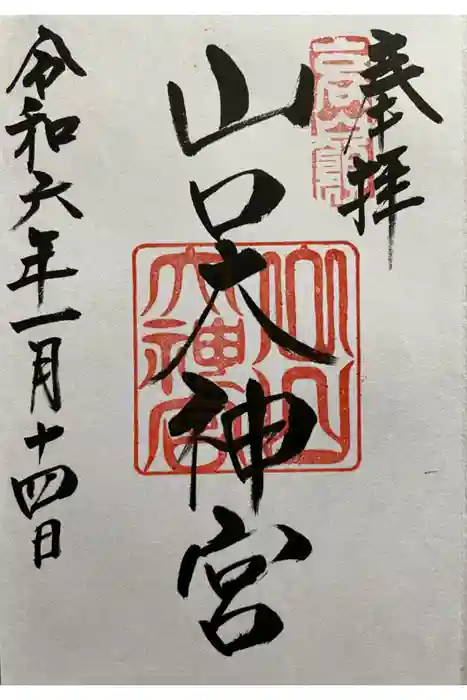 奉拝
山口大神宮
山口大神宮
令和六年一月十四日